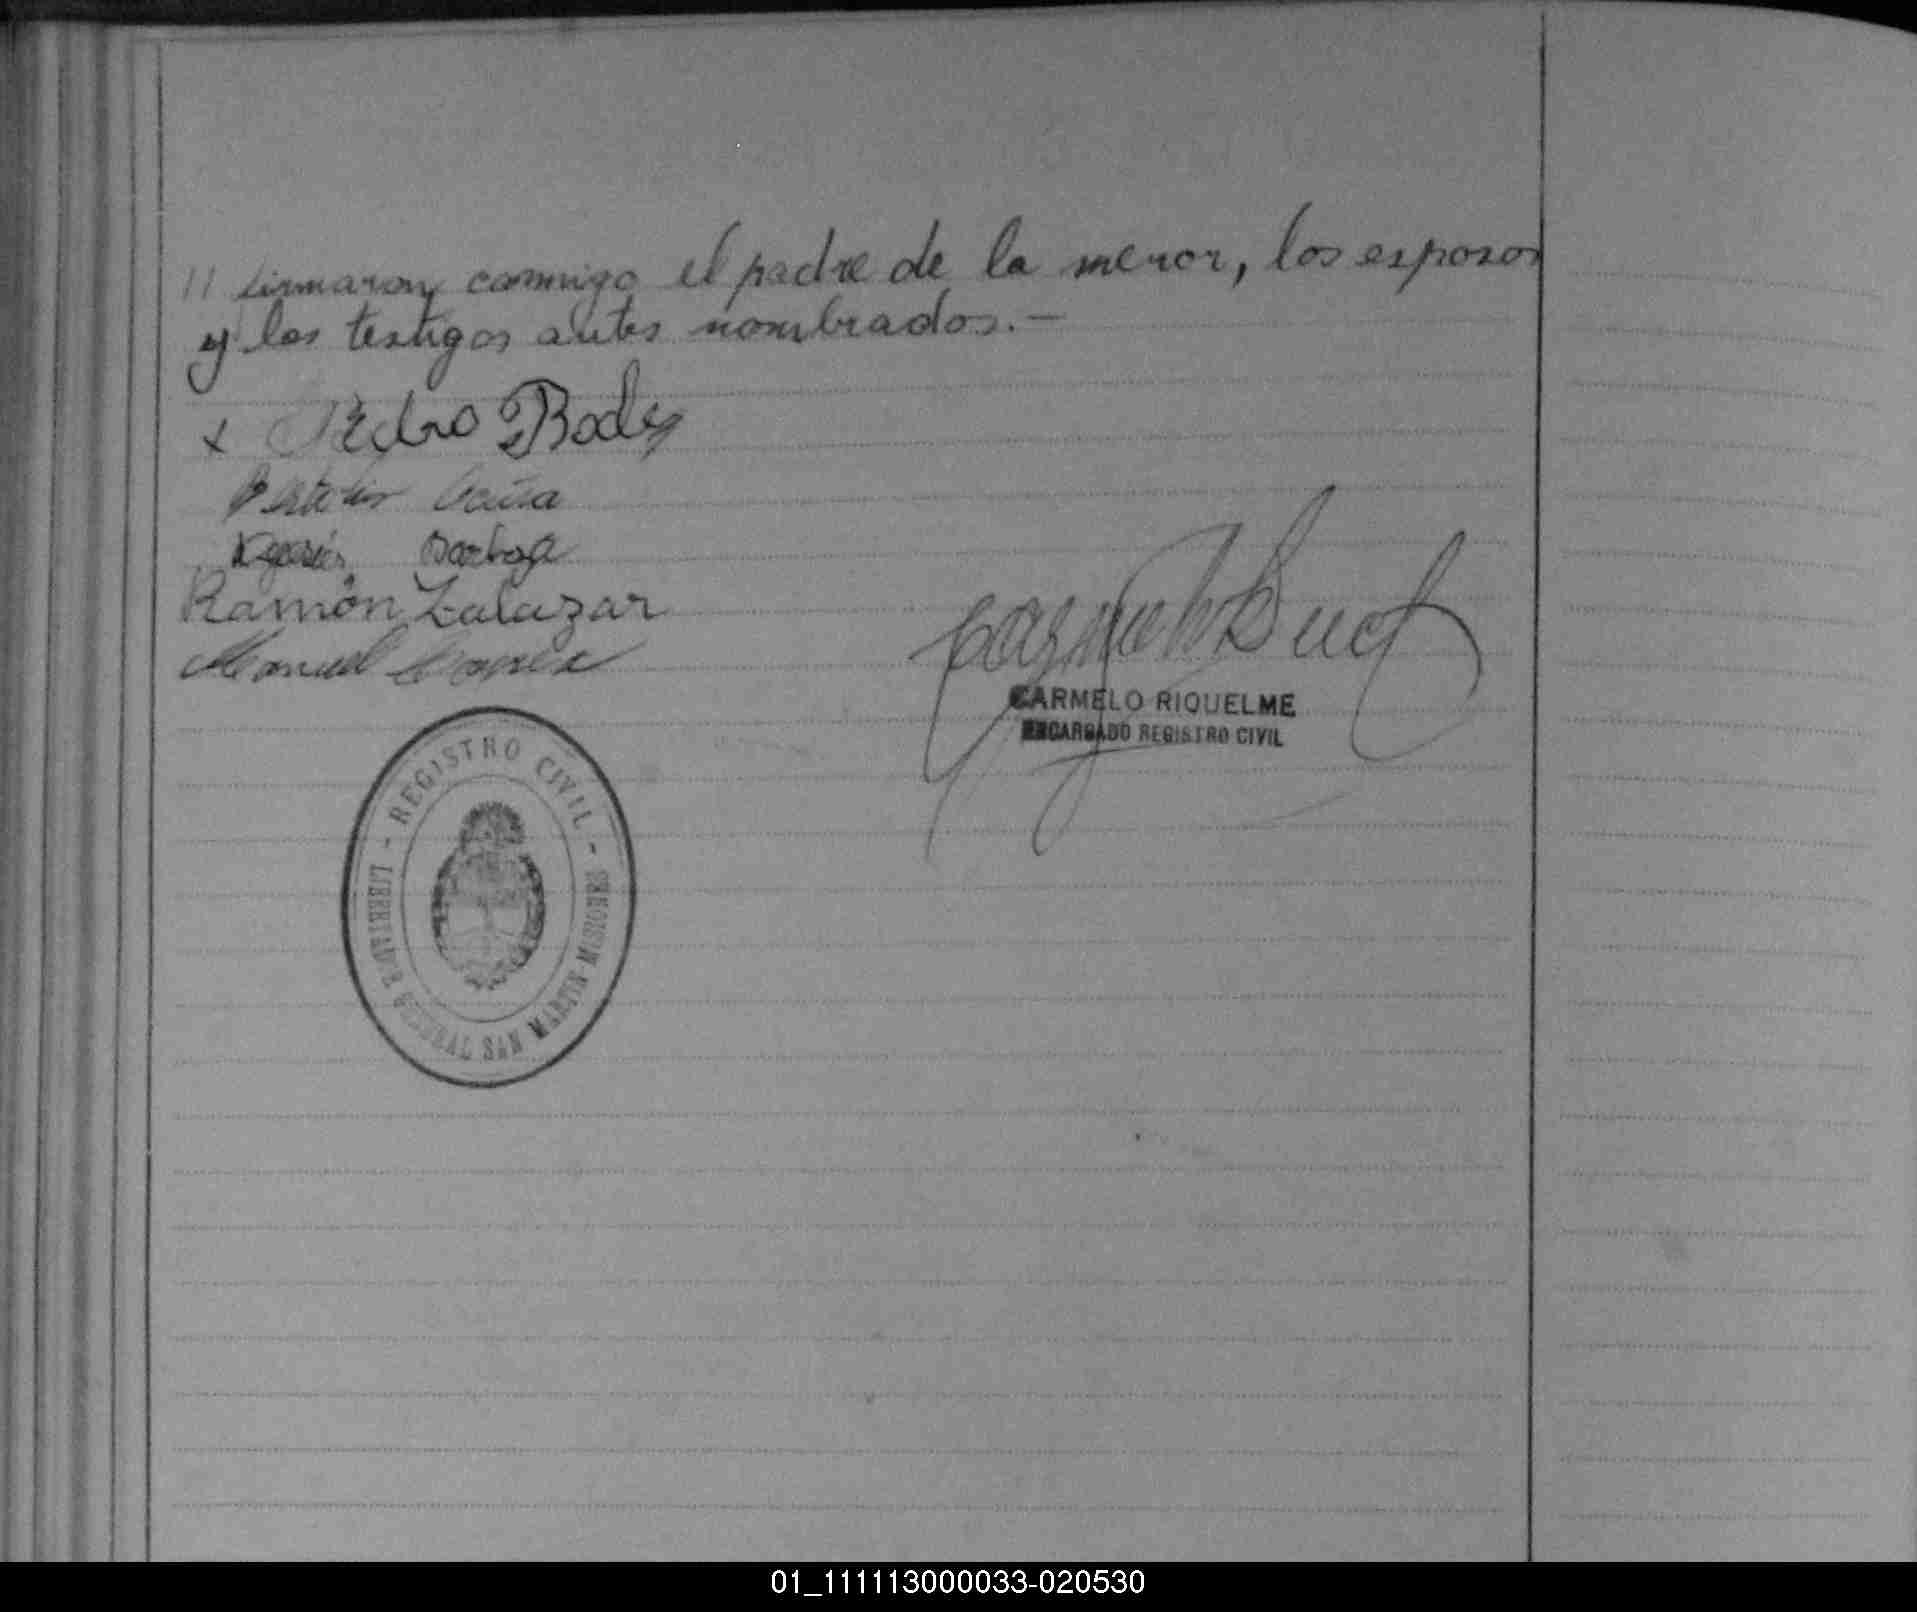 // firmaron conmigo el padre de la menor, los esposos
y los testigos antes nombrados.-
x Pedro Body
Ramón Zalazar
Manuel
CARMELO RIQUELME
ENCARGADO REGISTRO CIVIL
- REGISTRO CIVIL -
LIBERTADOR GENERAL SAN MARTIN-MISIONES
01_111113000033-020530